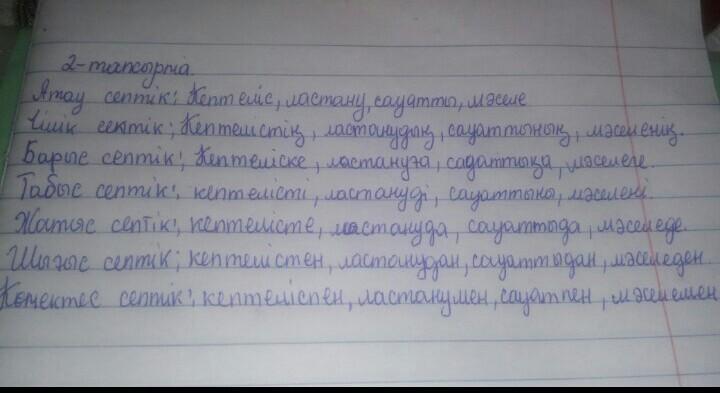 2-тапсырма.
Атау септік; Кептеліс, ластану, сауатты, мәселе
Ілік септік; Кептелістің, ластанудың, сауаттының, мәселенің.
Барыс септік; Кептеліске, ластануға, сауаттыға, мәселеге.
Табыс септік; кептелісті, ластануді, сауаттыны, мәселені.
Жатыс септік; кептелісте, ластануда, сауаттыда, мәселеде.
Шығыс септік; кептелістен, ластанудан, сауаттыдан, мәселеден.
Көмектес септік; кептеліспен, ластанумен, сауатпен, мәселемен